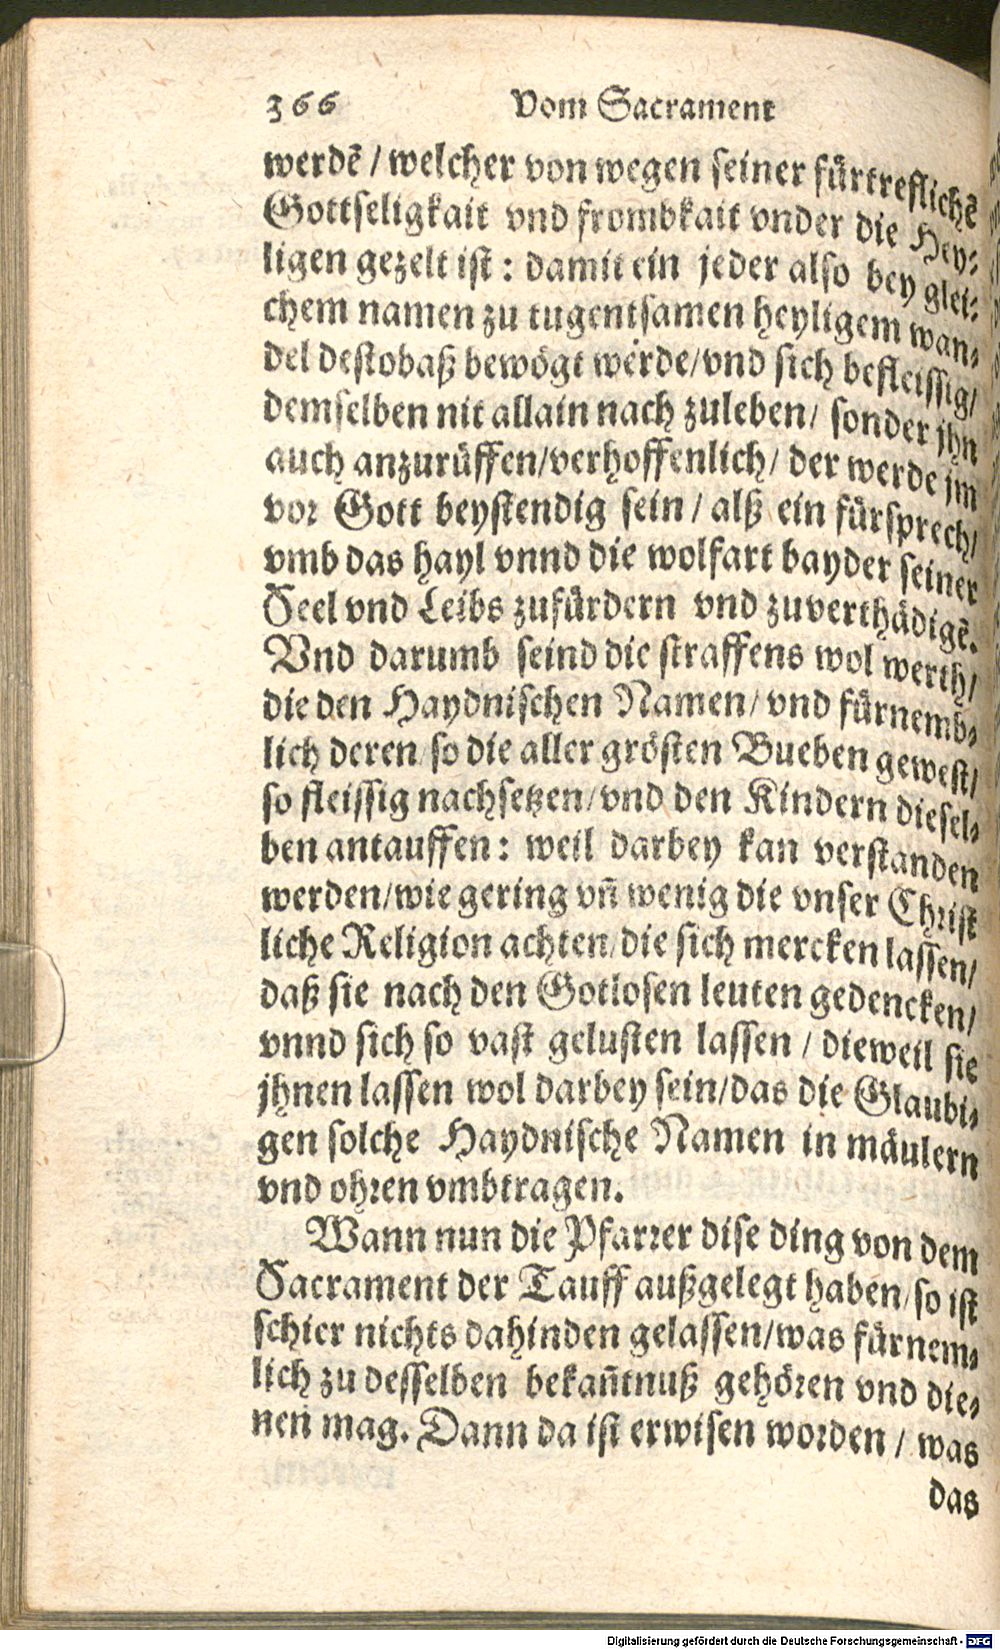 366 Vom Sacrament
werdē / welcher von wegen seiner fürtreflichē
Gottseligkait vnd frombkait vnder die Hey⸗
ligen gezelt ist : damit ein jeder also bey glei⸗
chem namen zu tugentsamen heyligem wan⸗
del destobaß bewögt werde/vnd sich befleissig/
demselben nit allain nach zuleben/ sonder jhn
auch anzurüffen/verhoffenlich/ der werde jm
vor Gott beystendig sein / alß ein fürsprech/
vmb das hayl vnnd die wolfart bayder seiner
Seel vnd Leibs zufürdern vnd zuverthädigē.
Vnd darumb seind die straffens wol werth/
die den Haydnischen Namen/ vnd fürnemb⸗
lich deren/so die aller grösten Bueben gewest/
so fleissig nachsetzen/vnd den Kindern diesel⸗
ben antauffen : weil darbey kan verstanden
werden/wie gering vñ wenig die vnser Christ
liche Religion achten/die sich mercken lassen/
daß sie nach den Gotlosen leuten gedencken/
vnnd sich so vast gelusten lassen / dieweil sie
jhnen lassen wol darbey sein/das die Glaubi⸗
gen solche Haydnische Namen in mäulern
vnd ohren vmbtragen.
Wann nun die Pfarrer dise ding von dem
Sacrament der Tauff außgelegt haben/so ist
schier nichts dahinden gelassen/was fürnem⸗
lich zu desselben bekañtnuß gehören vnd die⸗
nen mag. Dann da ist erwisen worden / was
das
Digitalisierung gefördert durch die Deutsche Forschungsgemeinschaft - DFG